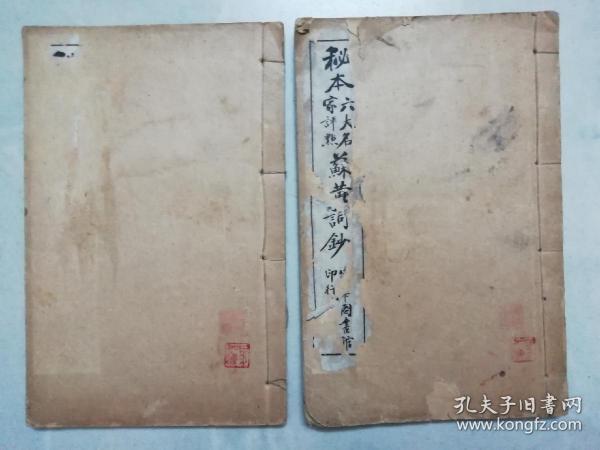 秘本
六大名
家評點
蘇黃詞鈔
下图書馆
印行
孔夫子旧书网
www.kongfz.com